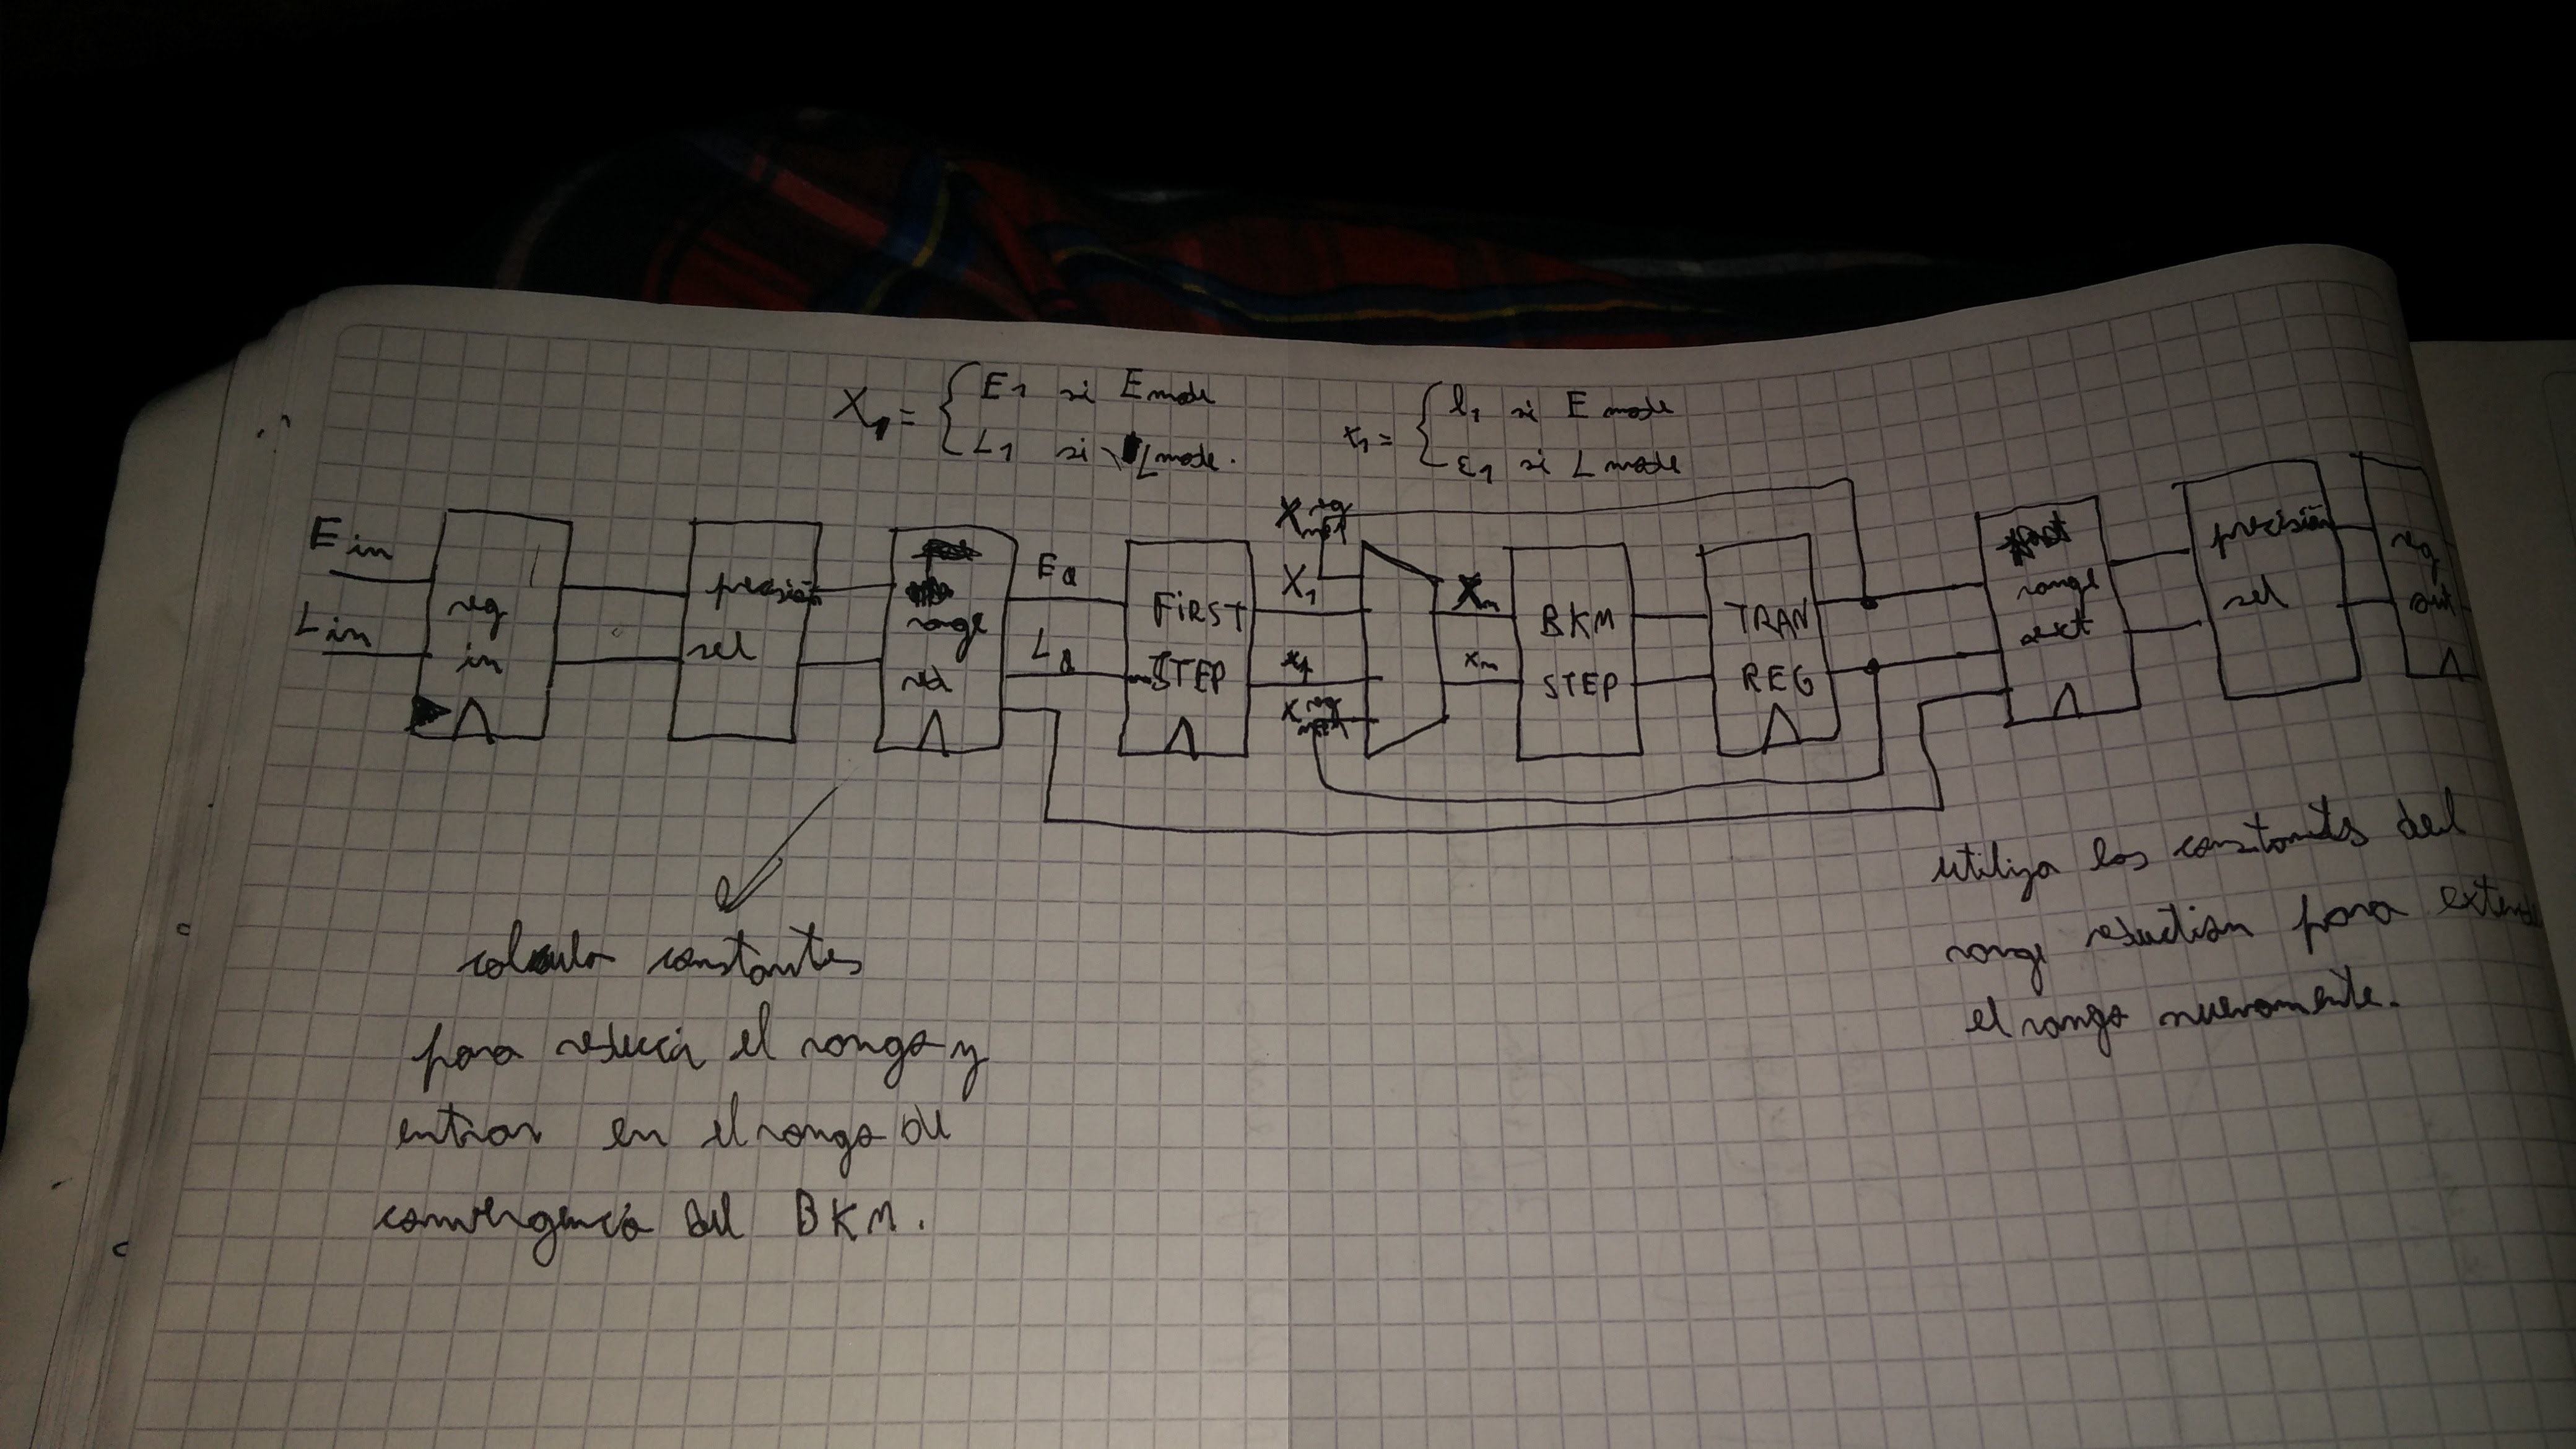 X₁ = { E1 si E mode
L1 si L mode.
x₁ = { l₁ si E mode
ε₁ si L mode
E in
L in
reg
in
precisión
sel
range
red
E0
L0
FIRST
STEP
X reg
X₁
x₁
X reg
Xn
xn
BKM
STEP
TRAN
REG
range
ext
precisión
sel
reg
out
calcula constantes
para reducir el rango y
entrar en el rango de
convergencia del BKM.
utiliza las constantes del
range reduction para extender
el rango nuevamente.